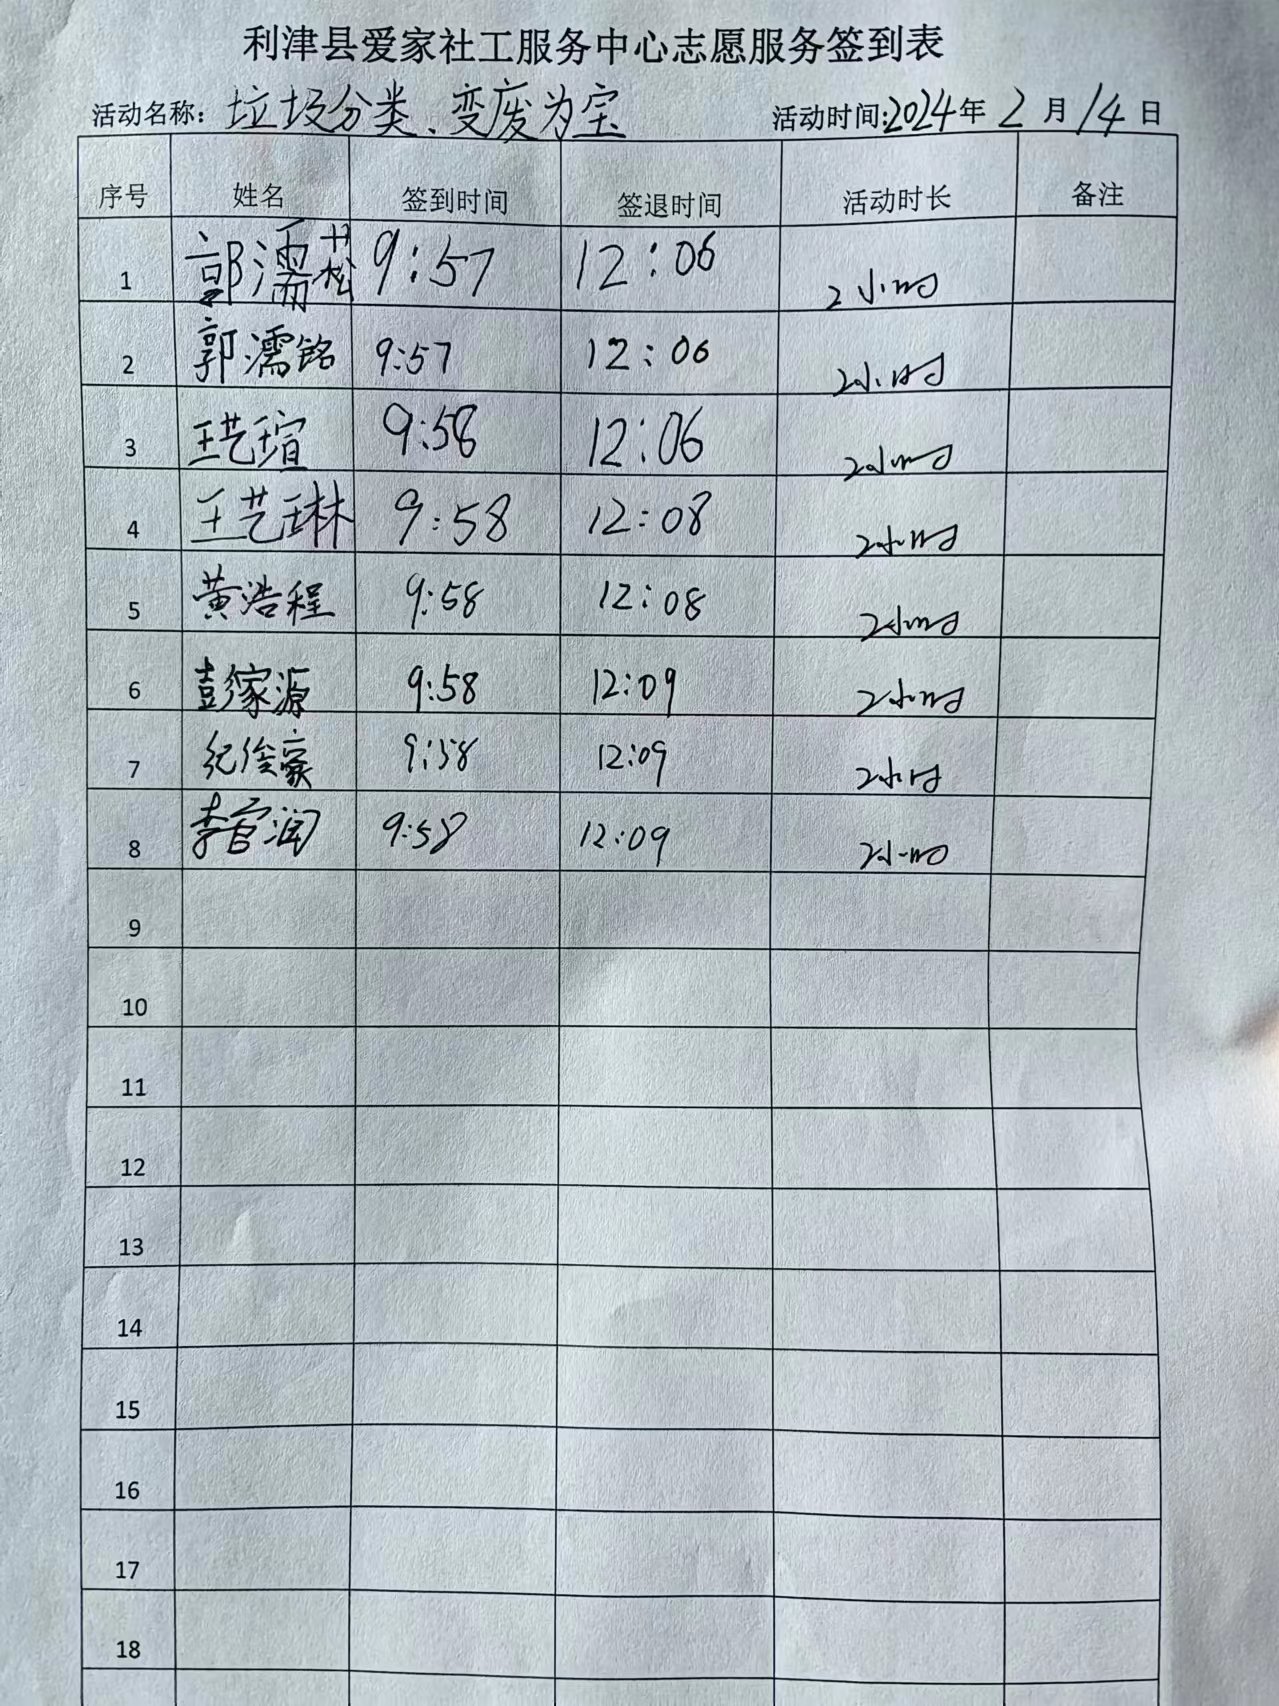 利津县爱家社工服务中心志愿服务签到表
活动名称：垃圾分类、变废为宝 活动时间:2024年 2 月 14 日
序号 姓名 签到时间 签退时间 活动时长 备注
1 郭濡菘 9:57 12:06 2小时
2 郭濡铭 9:57 12:06 2小时
3 王艺瑄 9:58 12:06 2小时
4 王艺琳 9:58 12:08 2小时
5 黄浩程 9:58 12:08 2小时
6 彭家源 9:58 12:09 2小时
7 纪俊豪 9:58 12:09 2小时
8 李官润 9:58 12:09 2小时
9
10
11
12
13
14
15
16
17
18